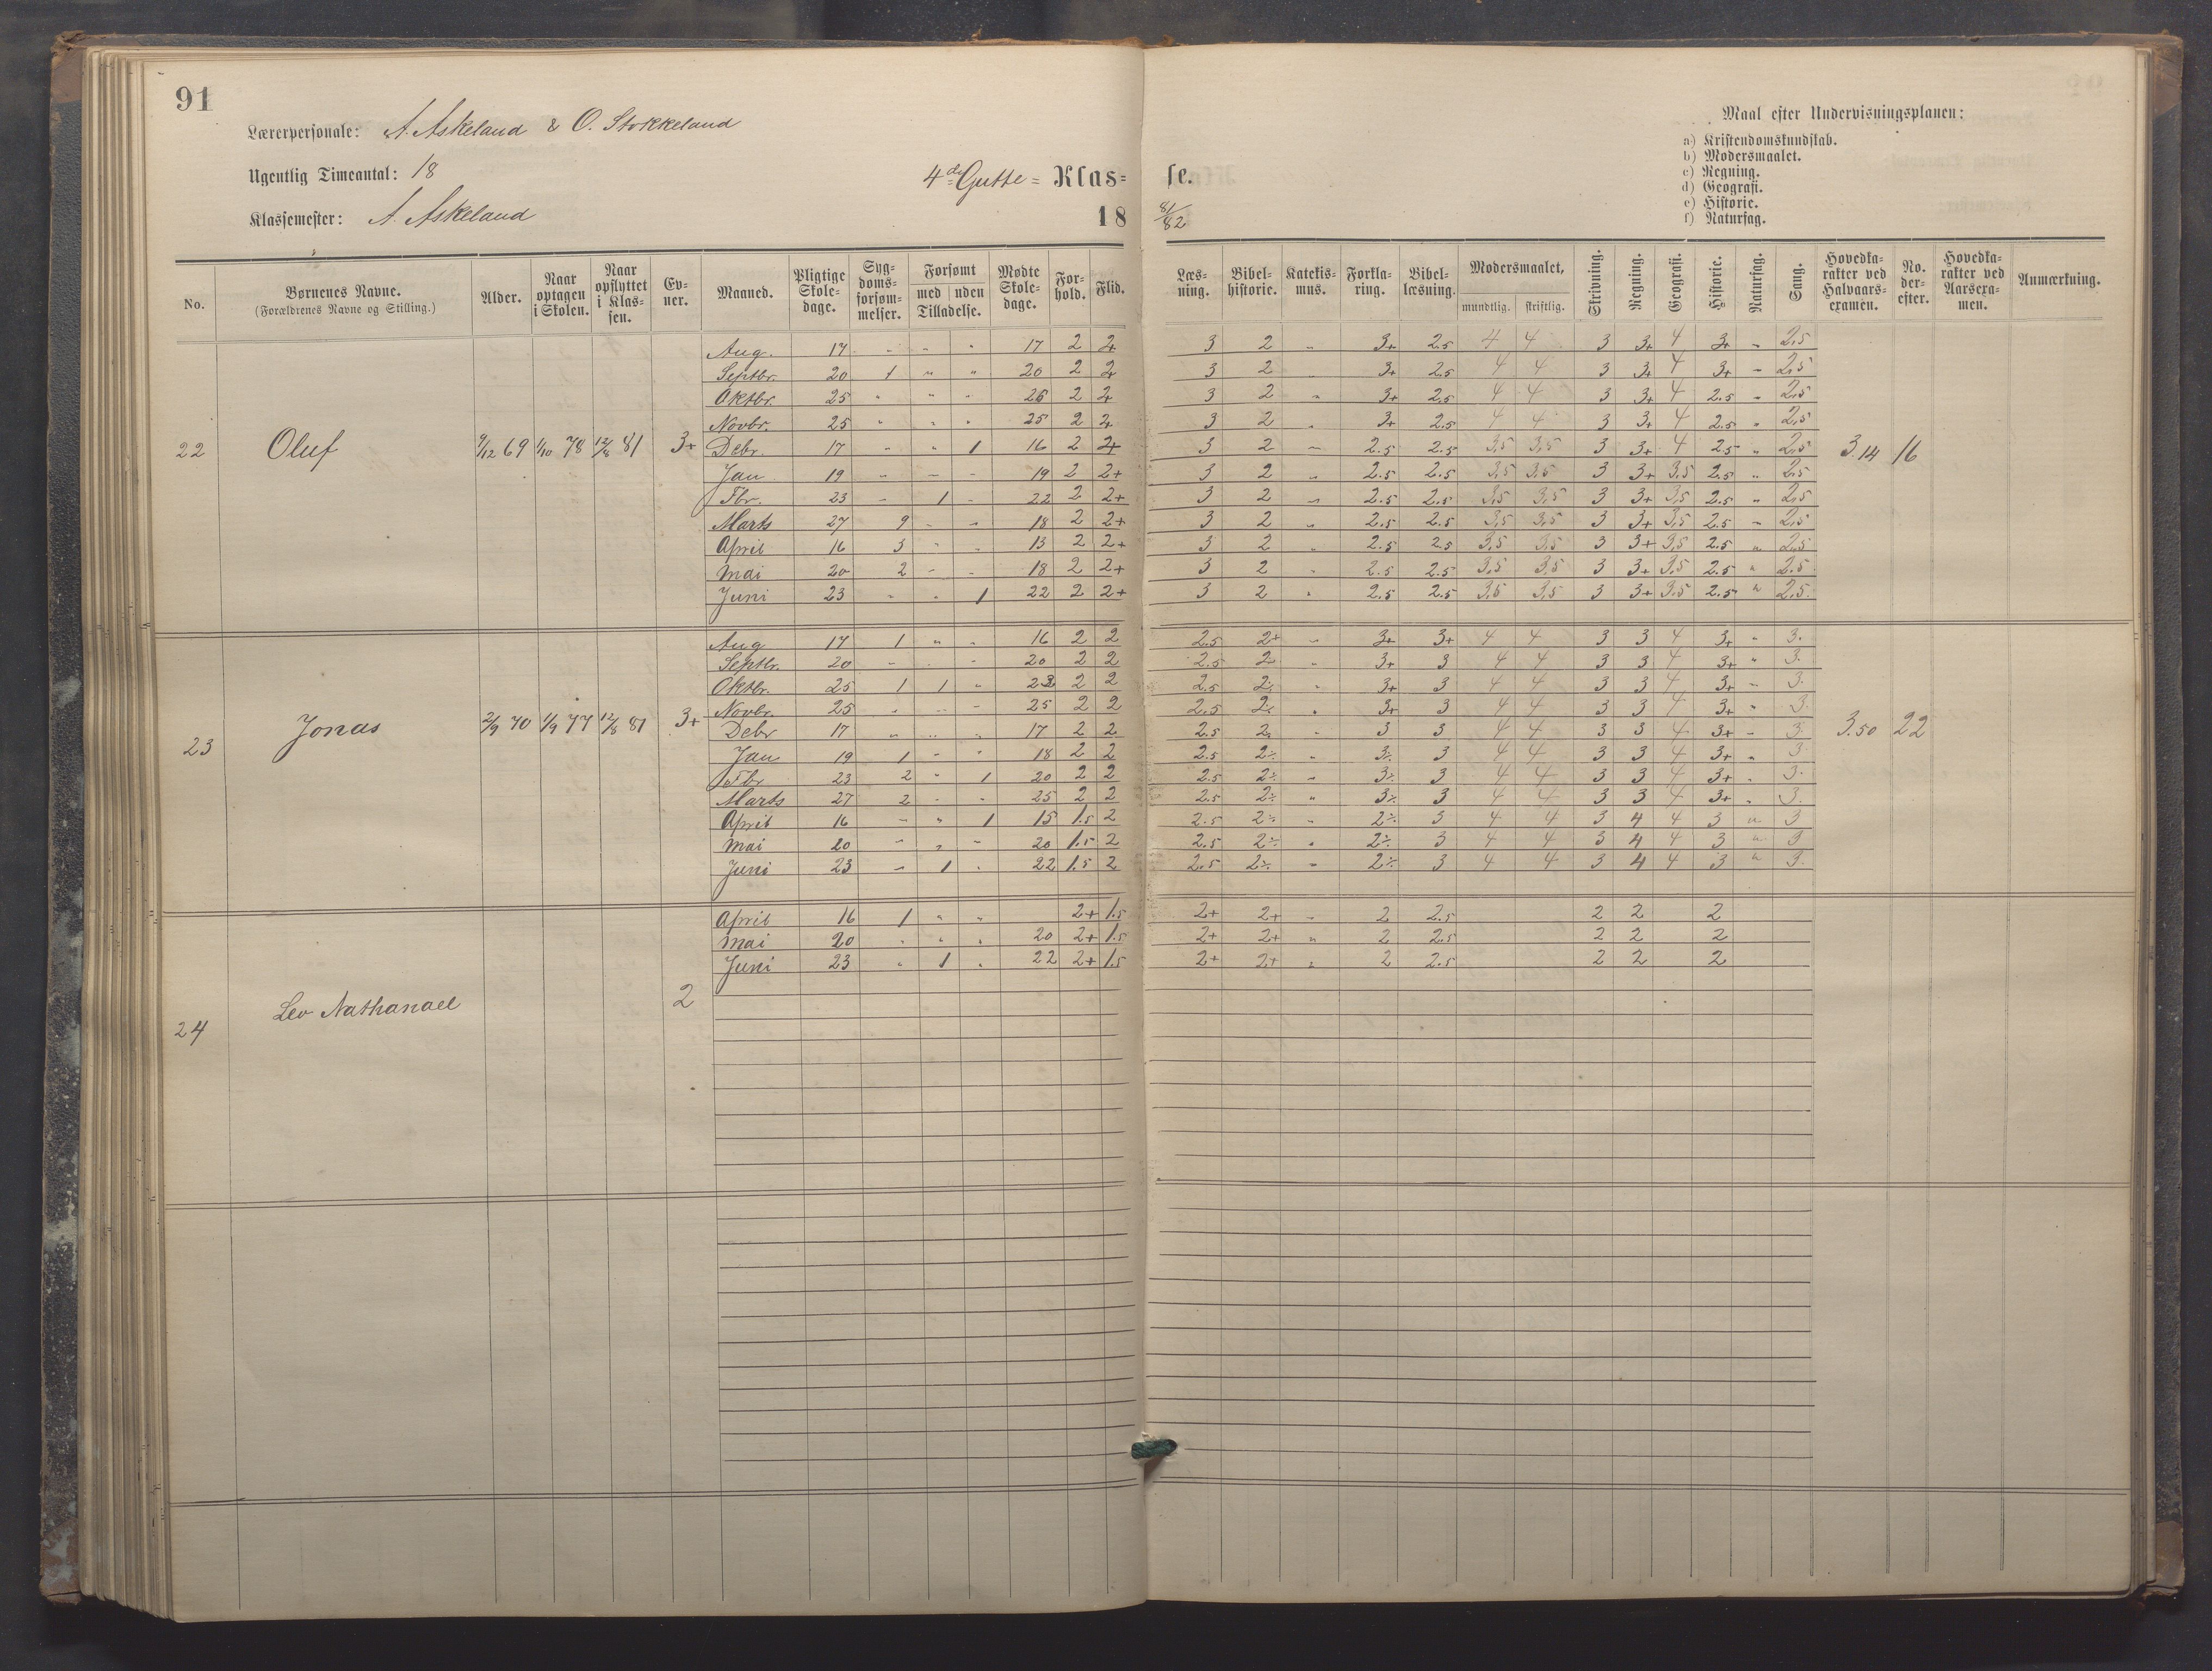 91
Lærerpersonale: A. Askeland & O. Stokkeland
Ugentlig Timeantal: 18
Klassemester: A. Askeland
4de Gutte = Klas= se.
18 81/82
Maal efter Undervisningsplanen:
a) Kristendomskundskab.
b) Modersmaalet.
c) Regning.
d) Geografi.
e) Historie.
f) Naturfag.
No. Børnenes Navne. (Forældrenes Navne og Stilling.) Alder. Naar optagen i Skolen. Naar opflyttet i Klassen. Evner. Maaned. Pligtige Skoledage. Sygdomsforsømmelser. Forsømt med uden Tilladelse. Mødte Skoledage. Forhold. Flid. Læsning. Bibelhistorie. Katekismus. Forklaring. Bibellæsning. Modersmaalet, mundtlig. skriftlig. Skrivning. Regning. Geografi. Historie. Naturfag. Sang. Hovedkarakter ved Halvaarsexamen. No. derefter. Hovedkarakter ved Aarsexamen. Anmærkning.
22 Oluf 9/12 69 1/10 78 12/8 81 3+ 3.14 16
Aug. 17 " " " 17 2 2+ 3 2 " 3+ 2.5 4 4 3 3+ 4 3+ " 2,5
Septbr. 20 1 " " 20 2 2+ 3 2 " 3+ 2.5 4 4 3 3+ 4 3+ " 2,5
Oktbr. 25 " " " 25 2 2+ 3 2 " 3+ 2.5 4 4 3 3+ 4 2.5 " 2,5
Novbr. 25 " " " 25 2 2+ 3 2 " 3+ 2.5 4 4 3 3+ 4 2.5 " 2,5
Debr. 17 " " 1 16 2 2+ 3 2 " 2.5 2.5 3,5 3,5 3 3+ 4 2.5 " 2,5
Jan 19 " " " 19 2 2+ 3 2 " 2.5 2.5 3,5 3,5 3 3+ 3,5 2.5 " 2,5
Fbr. 23 " 1 " 22 2 2+ 3 2 " 2.5 2.5 3,5 3,5 3 3+ 3,5 2.5 " 2,5
Marts 27 9 " " 18 2 2+ 3 2 " 2.5 2.5 3,5 3,5 3 3+ 3,5 2.5 " 2,5
April 16 3 " " 13 2 2+ 3 2 " 2.5 2.5 3,5 3,5 3 3+ 3,5 2.5 " 2,5
Mai 20 2 " " 18 2 2+ 3 2 " 2.5 2.5 3,5 3,5 3 3+ 3,5 2.5 " 2.5
Juni 23 " " 1 22 2 2+ 3 2 " 2.5 2.5 3,5 3,5 3 3+ 3,5 2.5 " 2,5
23 Jonas 2/9 70 1/9 77 12/8 81 3+ 3.50 22
Aug 17 1 " " 16 2 2 2.5 2+ " 3+ 3+ 4 4 3 3 4 3+ " 3.
Septbr. 20 " " " 20 2 2 2.5 2 " 3+ 3 4 4 3 3 4 3+ " 3.
Oktbr. 25 1 1 " 23 2 2 2.5 2 " 3+ 3 4 4 3 3 4 3+ " 3.
Novbr. 25 " " " 25 2 2 2.5 2 " 3+ 3 4 4 3 3 4 3+ " 3.
Debr 17 " " " 17 2 2 2.5 2 " 3 3 4 4 3 3 4 3+ " 3.
Jan 19 1 " " 18 2 2 2.5 2÷ " 3÷ 3 4 4 3 3 4 3+ " 3.
Fbr 23 2 " 1 20 2 2 2.5 2÷ " 3÷ 3 4 4 3 3 4 3+ " 3.
Marts 27 2 " " 25 2 2 2.5 2÷ " 3÷ 3 4 4 3 3 4 3+ " 3.
April 16 " " 1 15 1.5 2 2.5 2÷ " 2÷ 3 4 4 3 4 4 3 " 3
Mai 20 " " " 20 1.5 2 2.5 2÷ " 2÷ 3 4 4 3 4 4 3 " 3
Juni 23 " 1 " 22 1.5 2 2.5 2÷ " 2÷ 3 4 4 3 4 4 3 " 3.
24 Lev Nathanael 2
April 16 1 " " 2+ 1.5 2+ 2+ " 2 2.5 2 2 2
Mai 20 " " " 20 2+ 1.5 2+ 2+ " 2 2.5 2 2 2
Juni 23 " 1 " 22 2+ 1.5 2+ 2+ " 2 2.5 2 2 2